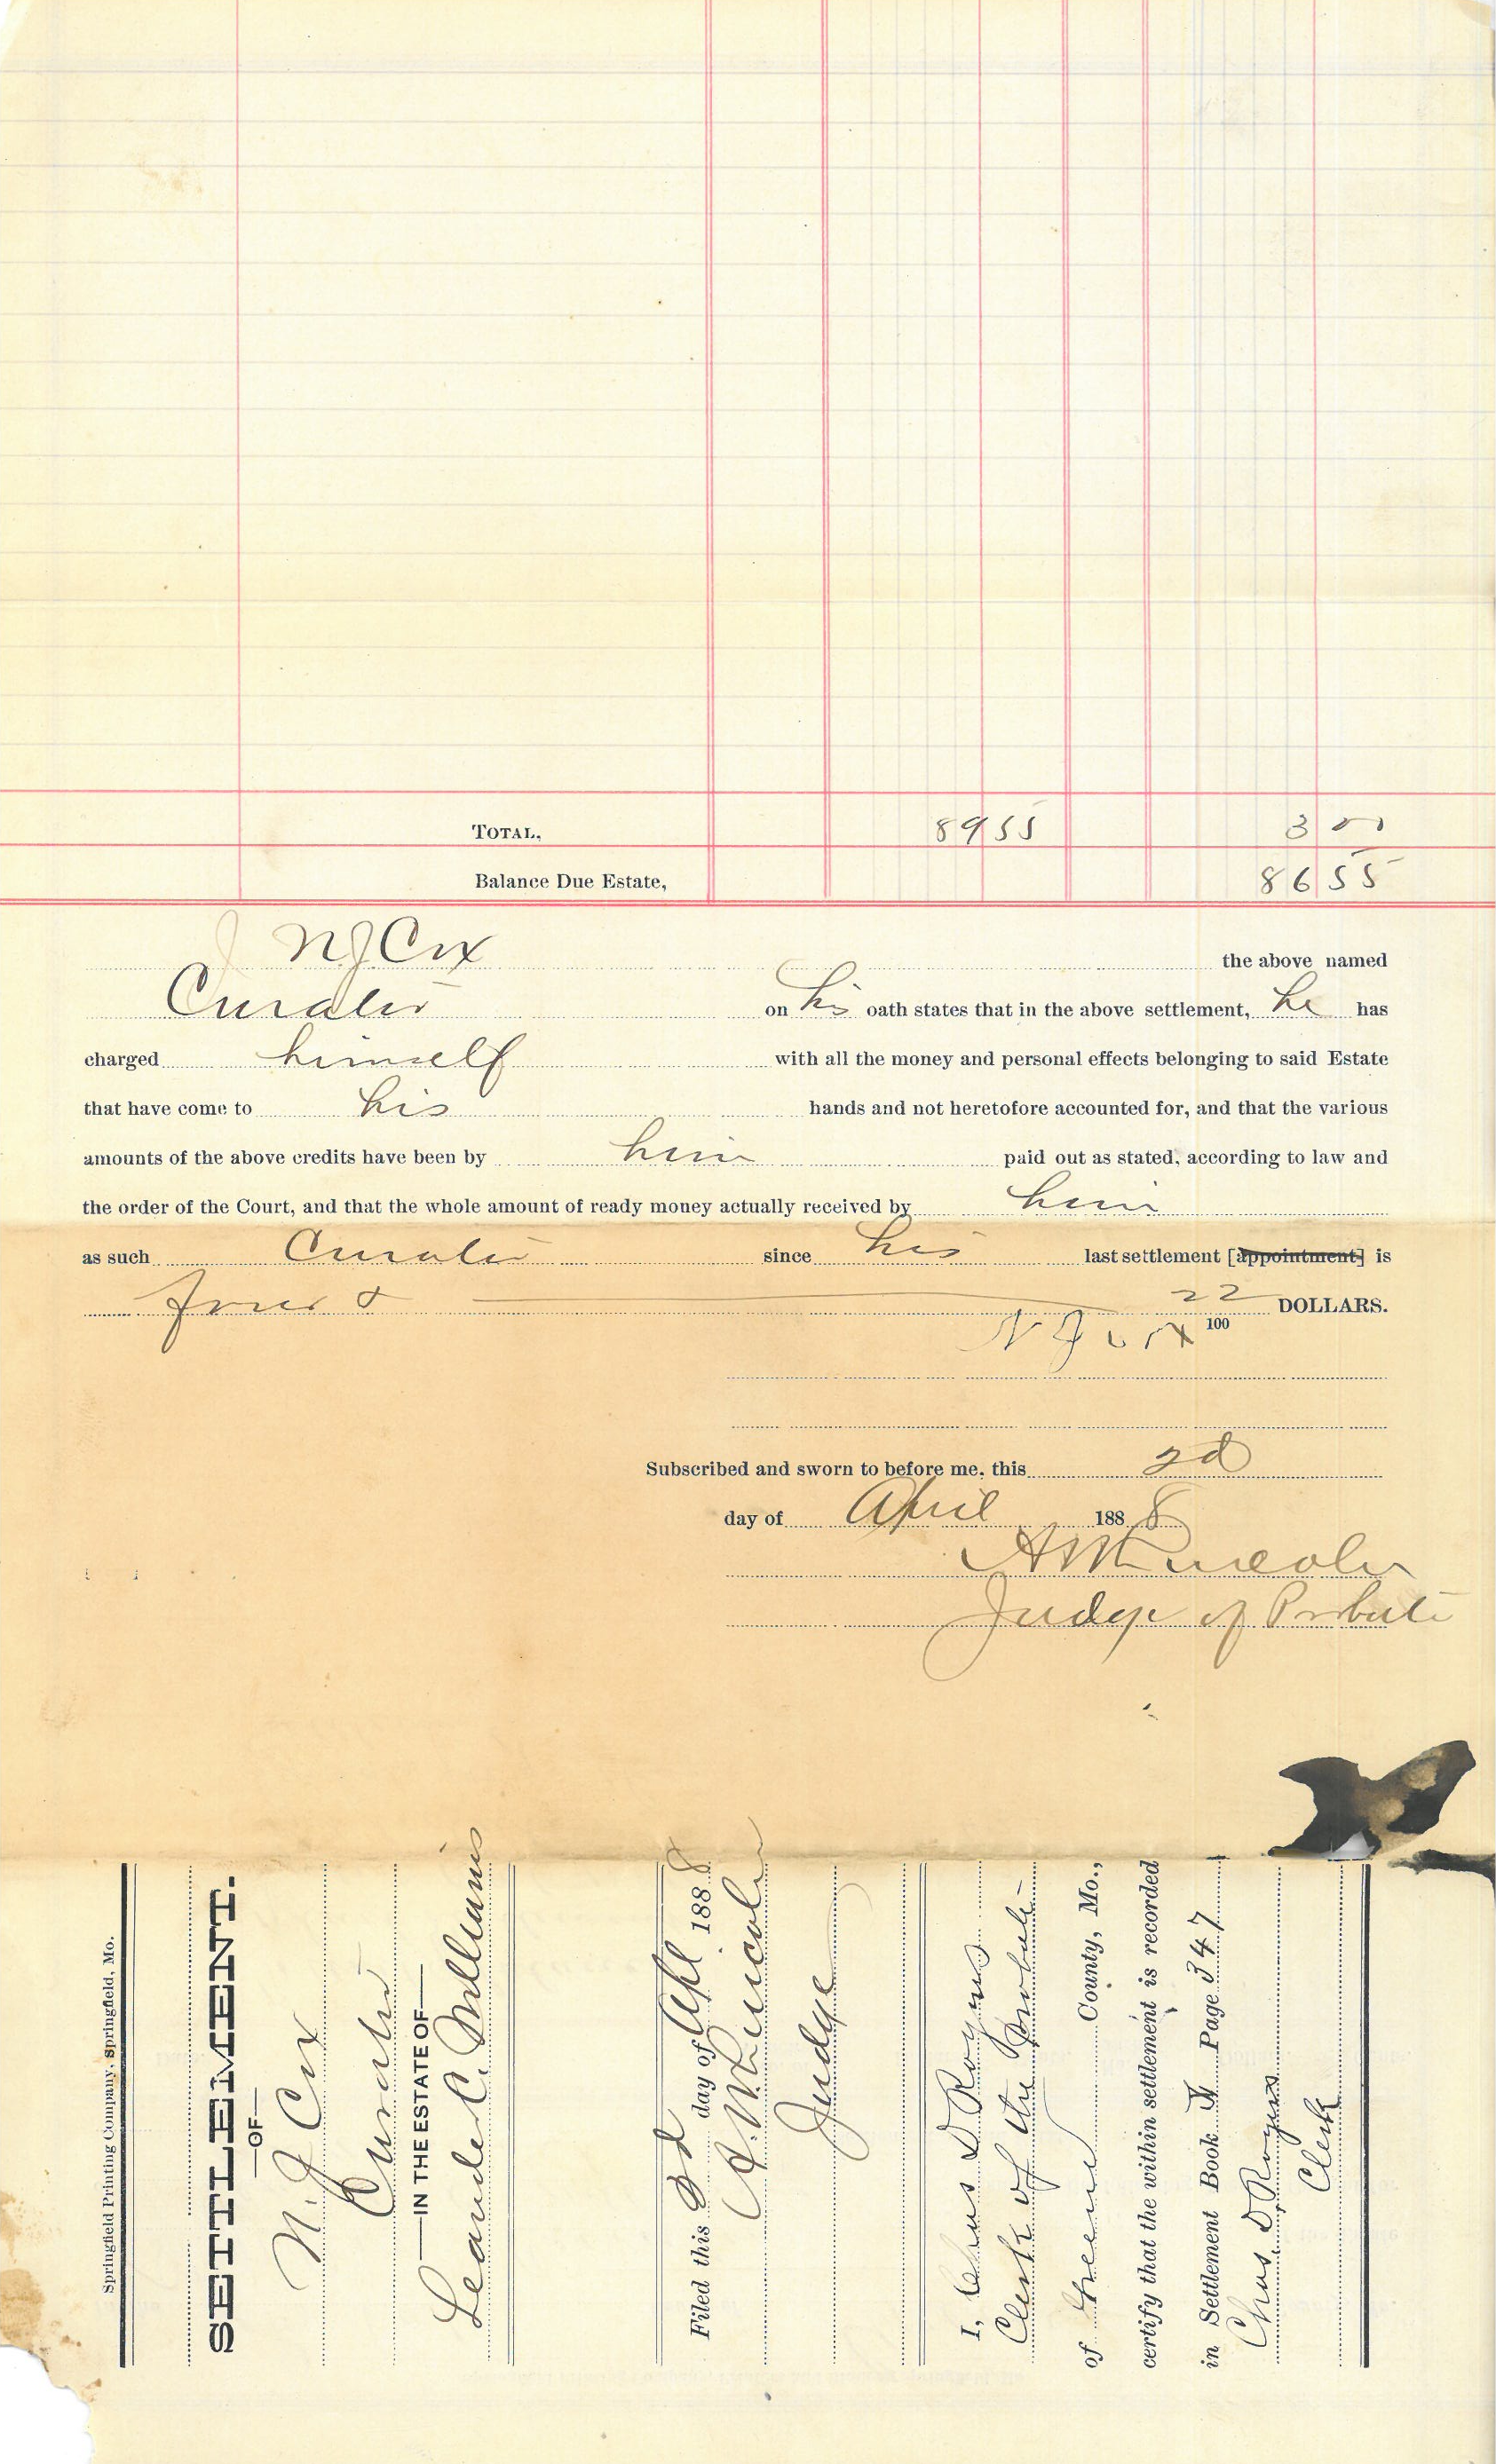 TOTAL, 89 55 3 00
Balance Due Estate, 86 55
N J Cox the above named
Curator on his oath states that in the above settlement, he has
charged himself with all the money and personal effects belonging to said Estate
that have come to his hands and not heretofore accounted for, and that the various
amounts of the above credits have been by him paid out as stated, according to law and
the order of the Court, and that the whole amount of ready money actually received by him
as such Curator since his last settlement [appointment] is
Four & 22/100 DOLLARS.
N J Cox
Subscribed and sworn to before me, this 2d
day of April 1888
A W Lincoln
Judge of Probate
Springfield Printing Company, Springfield, Mo.
SETTLEMENT.
—OF—
N. J. Cox
Curator
—IN THE ESTATE OF—
Leander C. Williams
Filed this 2d day of Apl 1888
A. W. Lincoln
Judge
I, Chas D Royers
Clerk of the Probate
of Greene County, Mo.,
certify that the within settlement is recorded
in Settlement Book Page 347
Chas. D. Royers
Clerk